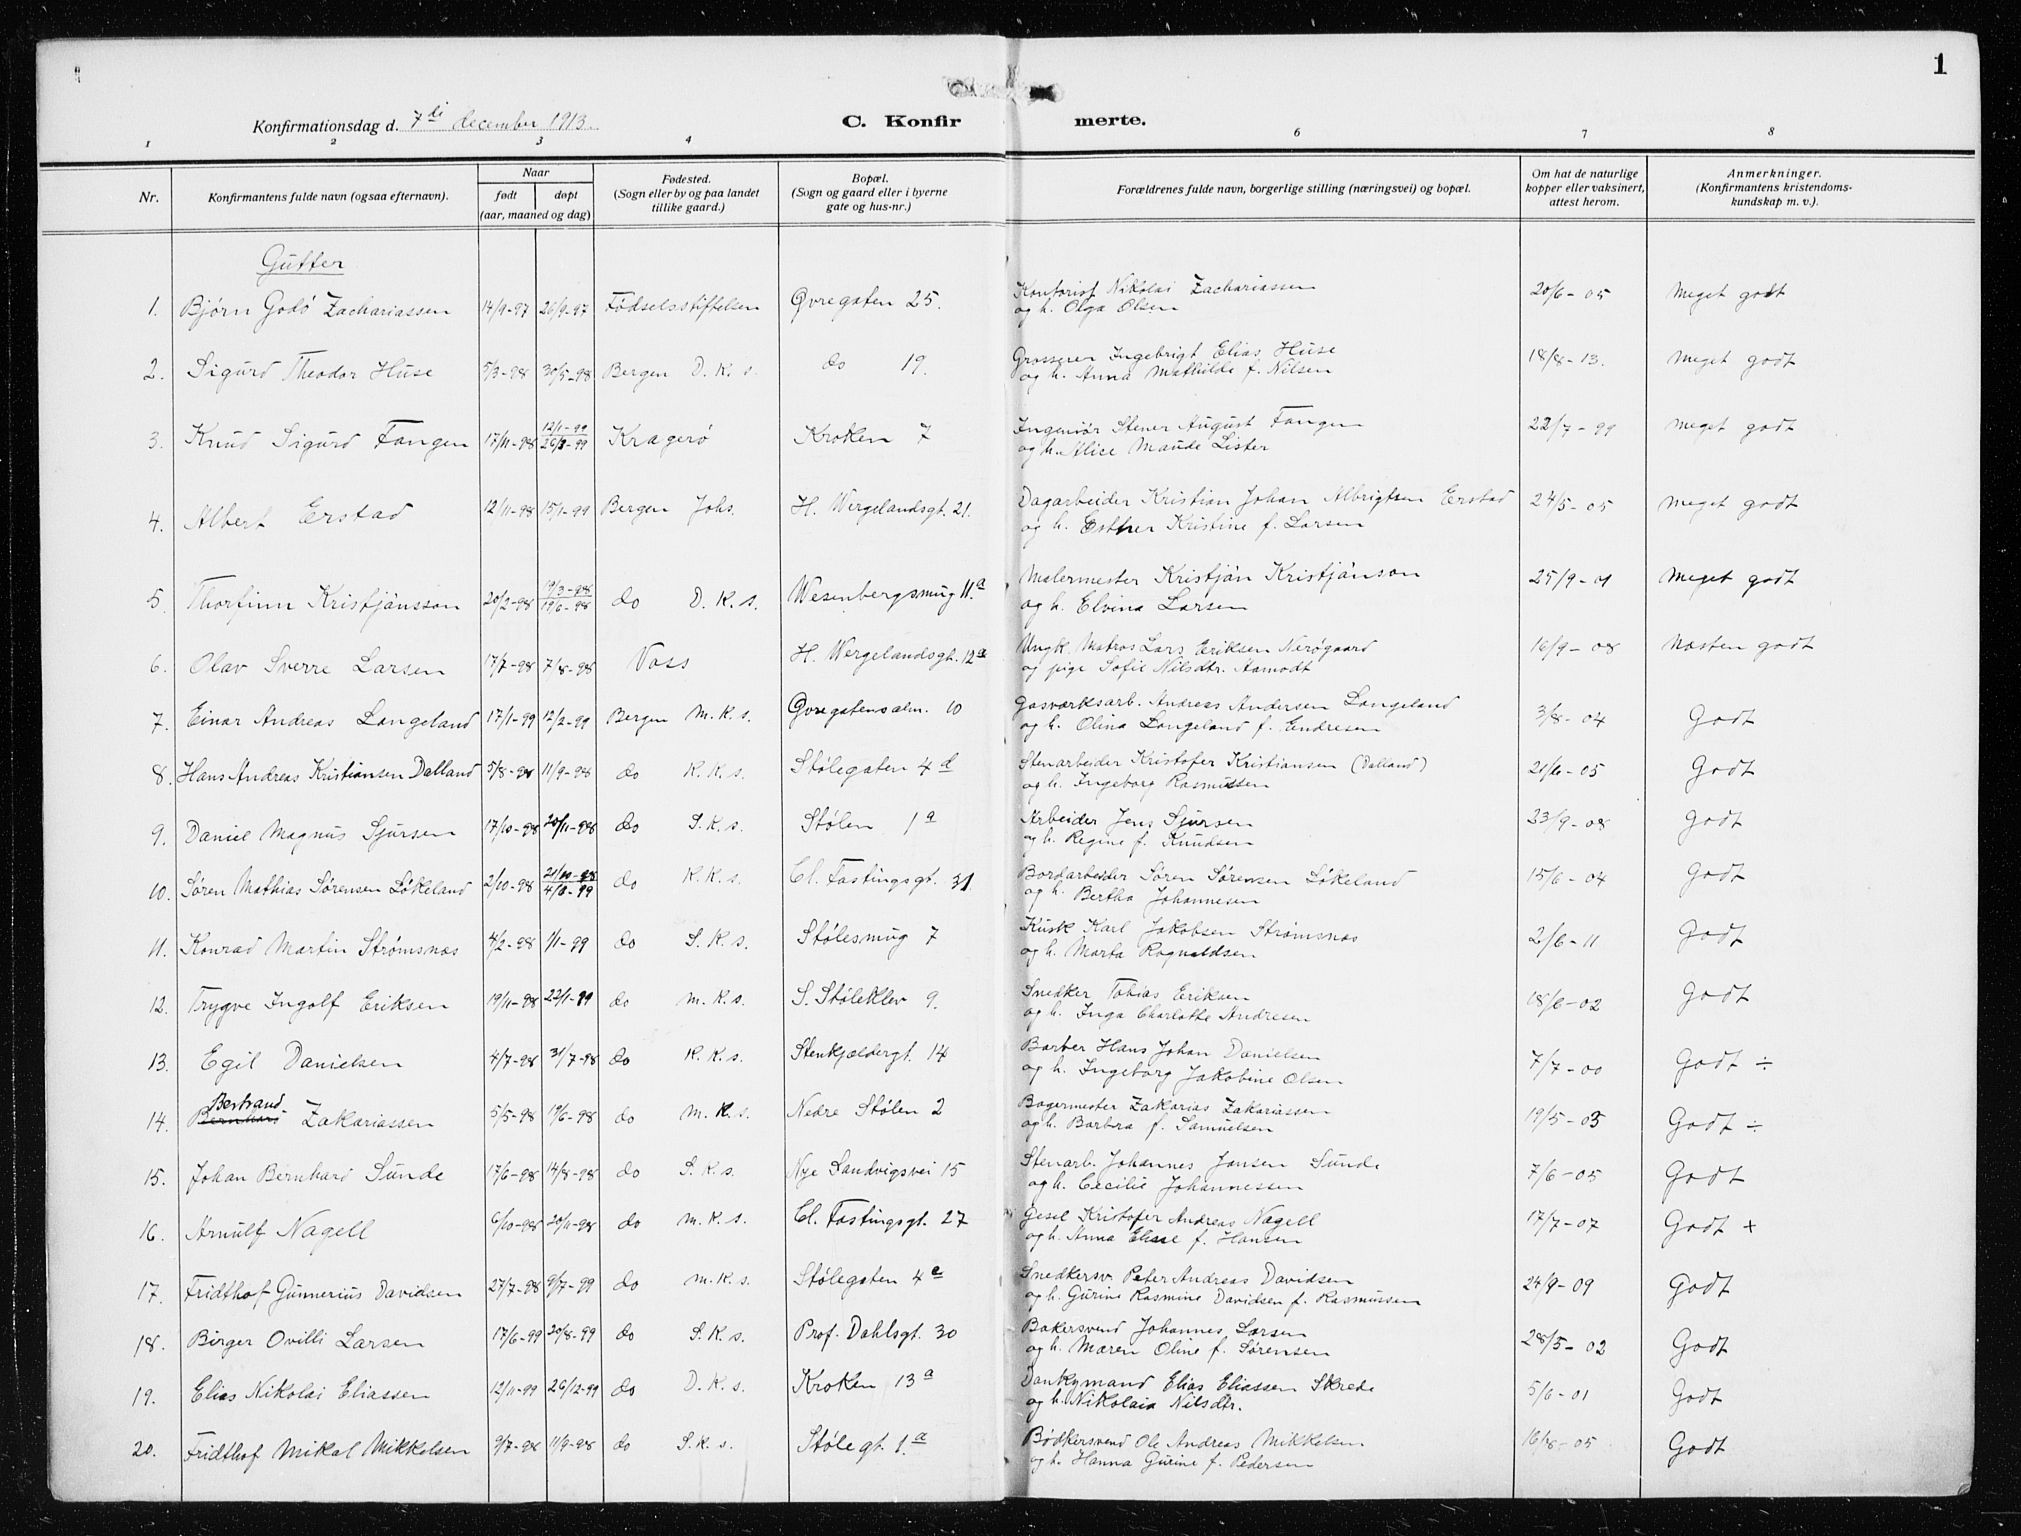 1
Konfirmationsdag d. 7di december 1913.
C. Konfir merte.
1 2 3 4 6 7 8
Nr. Konfirmantens fulde navn (ogsaa efternavn). Naar født døpt (aar, maaned og dag) Fødested. (Sogn eller by og paa landet tillike gaard.) Bopæl. (Sogn og gaard eller i byerne gate og hus-nr.) Forældrenes fulde navn, borgerlige stilling (næringsvei) og bopæl. Om hat de naturlige kopper eller vaksinert, attest herom. Anmerkninger. (Konfirmantens kristendoms-kundskap m. v.).
Gutter
1. Bjørn Godø Zachariassen 14/9-97 26/9-97 Fødselsstiftelsen Øvregaten 25. Kontorist Nikolai Zachariassen 20/6-05 Meget godt
og h. Olga Olsen
2. Sigurd Theodor Huse 5/3-98 30/5-98 Bergen D. K. s. do 19. Grosserer Ingebrigt Elias Huse 18/8-13. Meget godt
og h. Anna Mathilde f. Nilsen
3. Knud Sigurd Fangen 17/11-98 12/1-99 26/3-99 Kragerø Kroken 7 Ingeniör Stener August Fangen 22/7-99 Meget godt
og h. Alice Maude Lister
4. Albert Erstad 12/11-98 15/1-99 Bergen Johs. H. Wergelandsgt. 21. Dagarbeider Kristian Johan Albrigtsen Erstad 24/5-05 Meget godt
og h. Esther Kristine f. Larsen
5. Thorfinn Kristjánsson 20/2-98 19/3-98 19/6-98 do D. K. s. Wesenbergsmug 11.a Malermester Kristján Kristjánson 25/9-01 Meget godt
og h. Elvina Larsen
6. Olav Sverre Larsen 17/7-98 7/8-98 Voss H. Wergelandsgt. 12a Ungk. Matros Lars Eriksen Nerögaard 16/9-08 Næsten godt
og pige Sofie Nilsdtr. Aamodt
7. Einar Andreas Langeland 17/1-99 12/2-99 Bergen M. K. s. Øvregatensalm. 10 Gasværksarb. Andreas Andersen Langeland 3/8-04 Godt
og h. Olina Langeland f. Endresen
8. Hans Andreas Kristiansen Dalland 5/8-98 11/9-98 do K. K. s. Stølegaten 4d Stenarbeider Kristofer Kristiansen (Dalland) 21/6-05 Godt
og h. Ingeborg Rasmussen
9. Daniel Magnus Sjursen 17/10-98 20/11-98 do S. K. s. Stølen 1a Arbeider Jens Sjursen 23/9-08 Godt
og h. Regine f. Knudsen
10. Søren Mathias Sørensen Løkeland 2/10-98 21/10-98 do K. K. s. Cl. Fastingsgt. 31 Bordarbeider Søren Sørensen Løkeland 15/6-04 Godt
og h. Bertha Johannesen
11. Konrad Martin Strømsnæs 4/2-98 1/1-99 do S. K. s. Stølesmug 7 Kusk Karl Jakobsen Strømsnæs 2/6-11 Godt
og h. Marta Rognaldsen
12. Trygve Ingolf Eriksen 19/11-98 22/1-99 do M. K. s. S. Støleklev 9. Snedker Tobias Eriksen 18/6-02 Godt
og h. Inga Charlotte Andresen
13. Egil Danielsen 4/7-98 31/7-98 do K. K. s. Stenkjældergt. 14 Barber Hans Johan Danielsen 7/7-00 Godt ÷
og h. Ingeborg Jakobine Olsen
Bertrand
14. Bernhard Zakariassen 5/5-98 19/6-98 do M. K. s. Nedre Stølen 2 Bagermester Zakarias Zakariassen 19/5-03 Godt ÷
og h. Barbra f. Samuelsen
15. Johan Bernhard Sunde 17/6-98 14/8-98 do S. K. s. Nye Sandvigsvei 15 Stenarb. Johannes Jansen Sunde 7/6-05 Godt
og h. Cecilie Johannessen
16. Arnulf Nagell 6/10-98 20/11-98 do M. K. s. Cl. Fastingsgt. 27 Gesel Kristofer Andreas Nagell 17/7-07 Godt +
og h. Anna Elise f. Hansen
17. Fridthof Gunnerius Davidsen 27/7-98 9/7-99 do M. K. s. Stølegaten 4e Snedkersv. Peter Andreas Davidsen 24/9-09 Godt
og h. Gurine Rasmine Davidsen f. Rasmussen
18. Birger Ovilli Larsen 17/6-99 20/8-99 do S. K. s. Prof. Dahlsgt. 30 Bakersvend Johannes Larsen 28/5-02 Godt
og h. Maren Oline f. Sørensen
19. Elias Nikolai Eliassen 12/11-99 26/12-99 do D. K. s. Kroken 13a Dankymand Elias Eliassen Skrede 5/6-01 Godt
og h. Nikolaia Nilsdtr.
20. Fridthof Mikal Mikkelsen 9/7-98 11/9-98 do S. K. s. Stølegt. 1.a Bødkersvend Ole Andreas Mikkelsen 16/8-05 Godt
og h. Hanna Gurine f. Pedersen